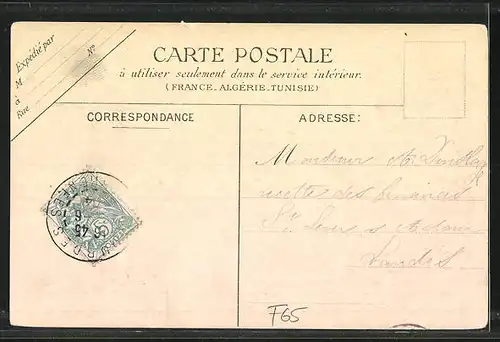 Expédié par
M
à
Rue
N°
CARTE POSTALE
à utiliser seulement dans le service intérieur.
(FRANCE-ALGÉRIE-TUNISIE)
CORRESPONDANCE
ADRESSE:
Monsieur A.
des finances
St Sever s Adour
Landes
16 45
6
F65